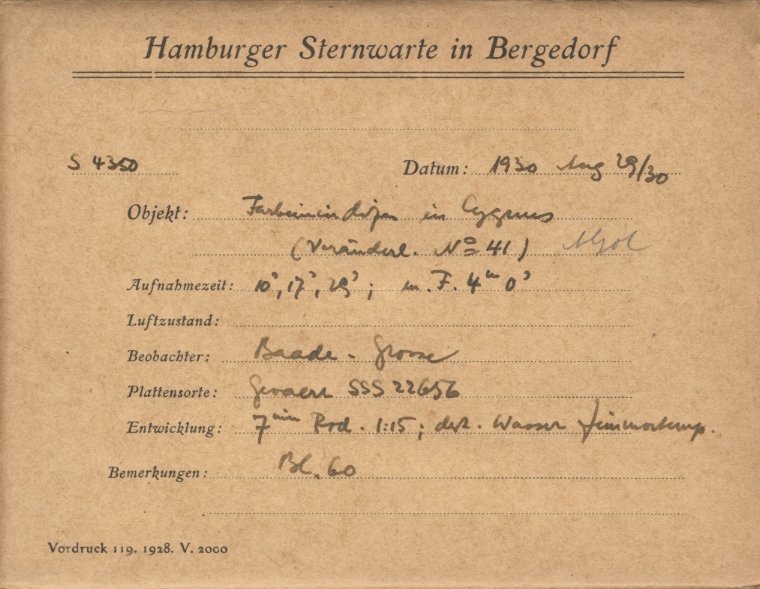 Hamburger Sternwarte in Bergedorf
S 4350 Datum: 1930 Aug 29/30
Objekt: Farbenindizes in Cygnus
(Veränderl. No 41) Algol
Aufnahmezeit: 10s, 17s, 29s; m. F. 4m 0s
Luftzustand:
Beobachter: Baade - Grosse
Plattensorte: Gevaert SSS 22656
Entwicklung: 7min Rod. 1:15; dest. Wasser Zimmertemp.
Bemerkungen: Bl. 60
Vordruck 119. 1928. V. 2000